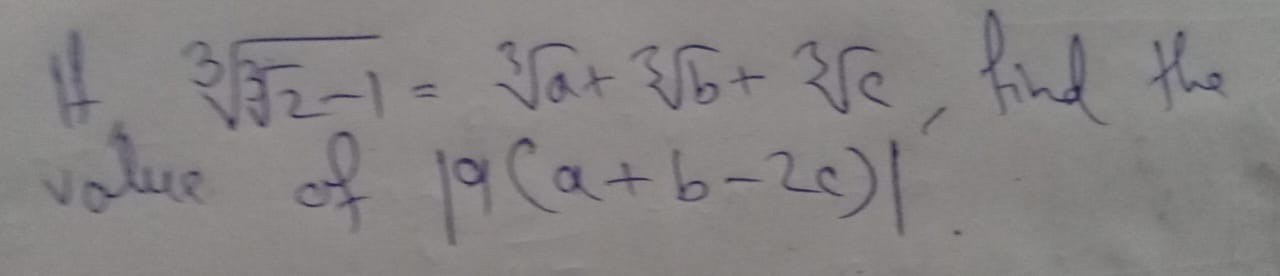 If ∛(∛2-1) = ∛a + ∛b + ∛c, find the
value of |9(a+b-2c)|.